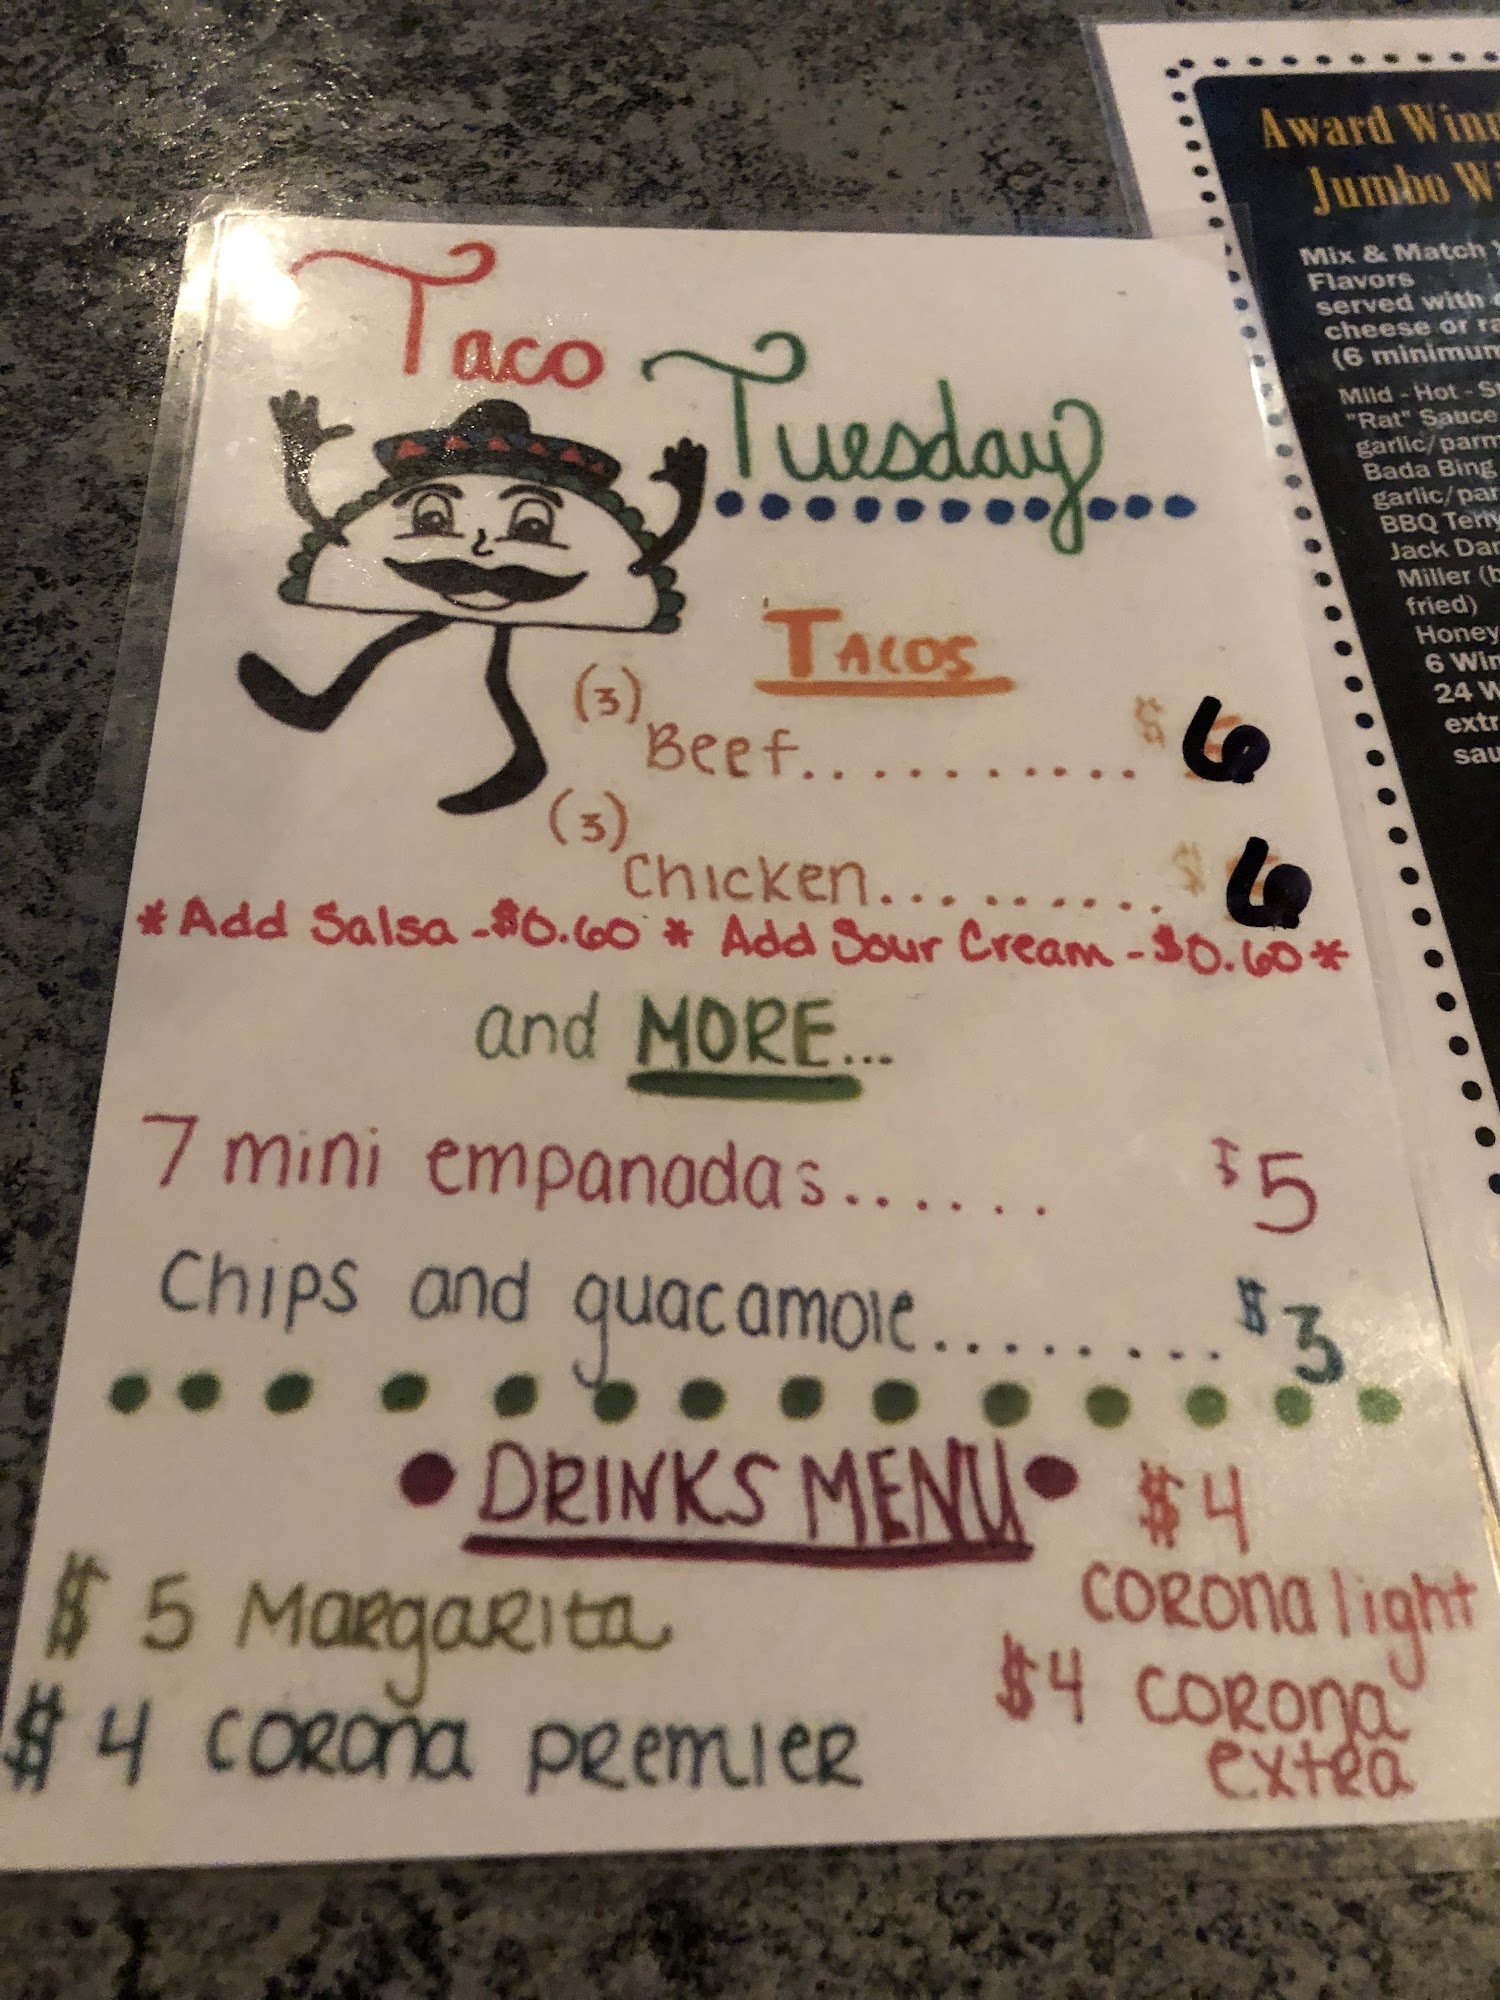 Taco
Tuesday
TACOS
(3)
Beef........... $ 6
(3)
Chicken.......... $ 6
*Add Salsa -$0.60 * Add Sour Cream -$0.60*
and MORE...
7 mini empanadas....... $5
Chips and guacamole......... $3
• DRINKS MENU •
$ 5 MargaRita
$ 4 coRona pRemieR
$4
coRona light
$4 coRona
extRa
Award
Jumbo
Mix & Match
Flavors
served with
cheese or
(6 minimum
Mild - Hot -
"Rat" Sauce
garlic/parm
Bada Bing
BBQ
Jack
Miller
fried)
Honey
6
24